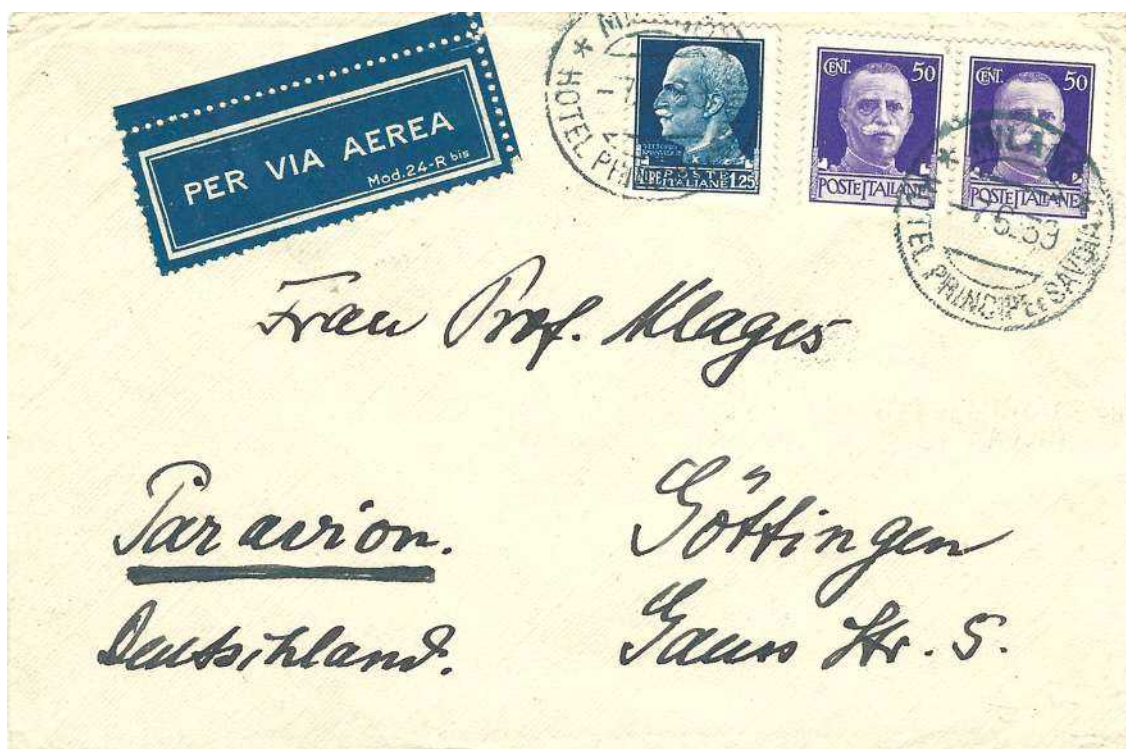 PER VIA AEREA
Mod.24-R bis
HOTEL
LIRE POSTE ITALIANE 1.25
CENT. 50
POSTE ITALIANE
CENT. 50
POSTE ITALIANE
* MILANO *
HOTEL PRINCIPE SAVOIA
Frau Prof. Klages
Par avion.
Deutschland.
Göttingen
Gauss Str. 5.